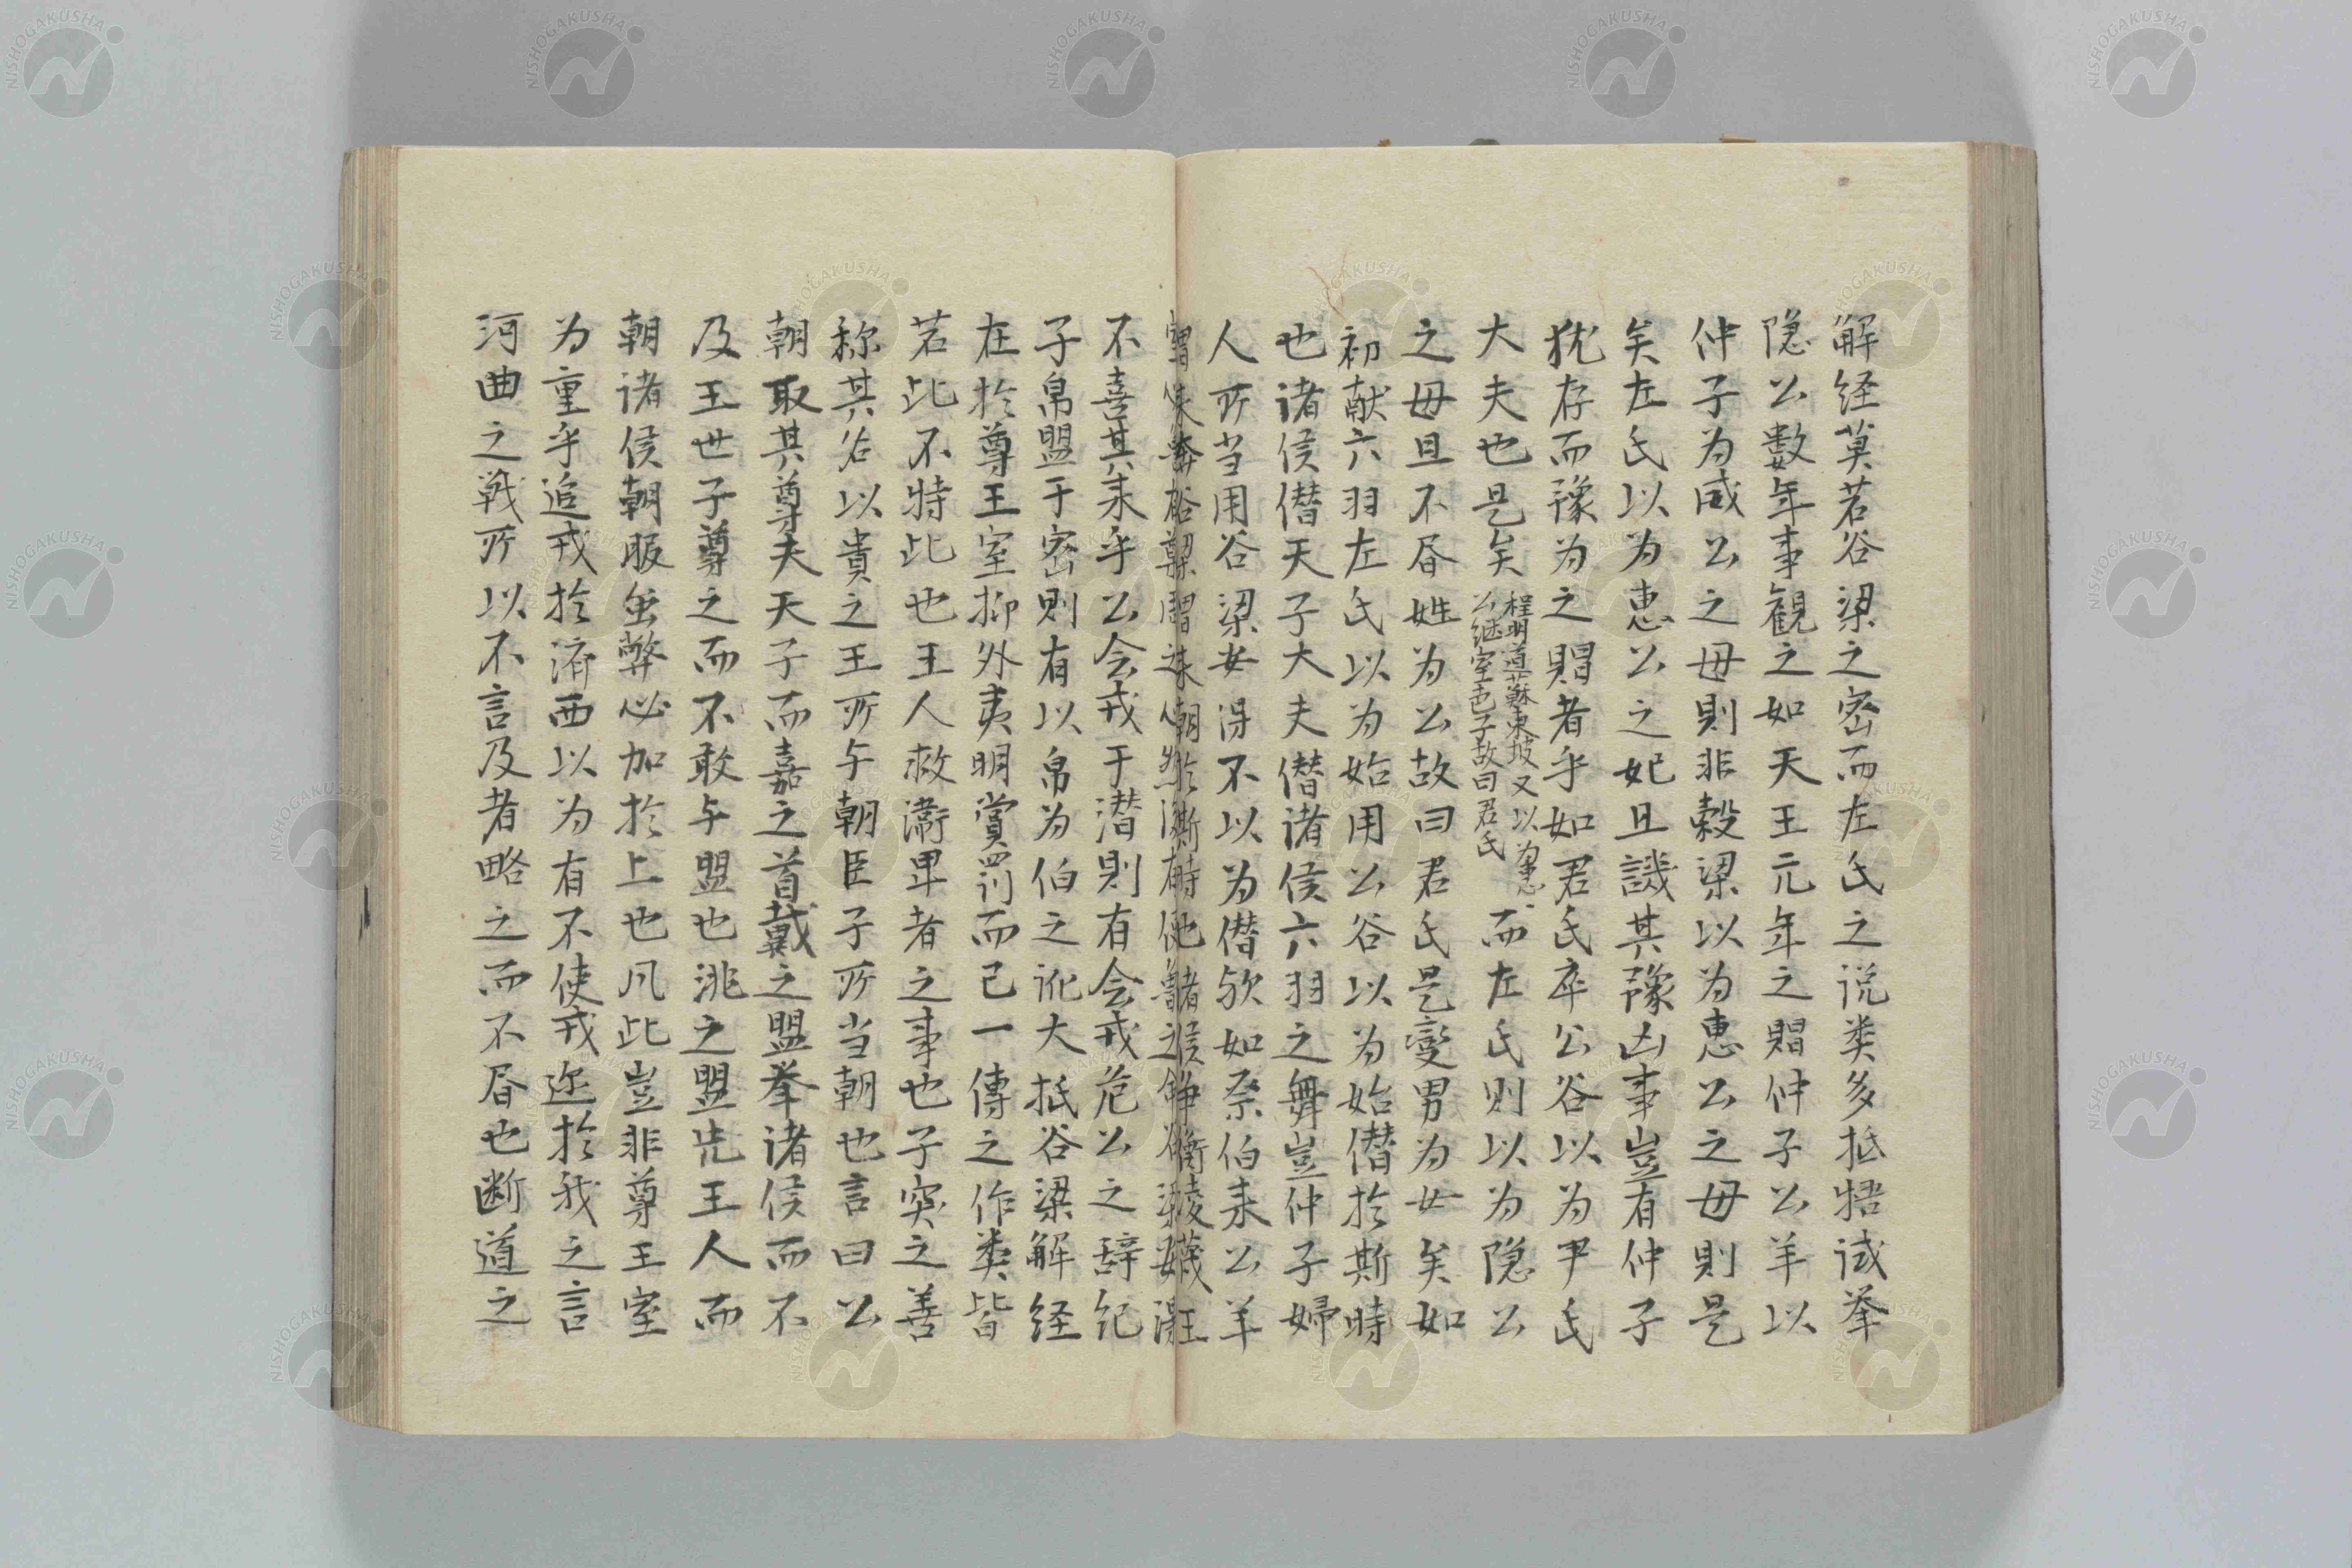 解経莫若谷梁之密而左氏之说类多抵牾试挙
隠公数年事観之如天王元年之賵仲子公羊以
仲子为威公之母則非穀梁以为恵公之母則是
矣左氏以为恵公之妃且譏其豫凶事豈有仲子
犹存而豫为之賵者乎如君氏卒公谷以为尹氏
大夫也是矣
程明道蘇東坡又以为恵
公継室色子故曰君氏
而左氏則以为隠公
之母且不昏姓为公故曰君氏是變男为女矣如
初献六羽左氏以为始用公谷以为始僣於斯時
也诸侯僣天子大夫僣诸侯六羽之舞豈仲子婦
人所当用谷梁安得不以为僣欤如祭伯来公羊
不喜其来乎公会戎于潜則有会戎危公之辞纪
子帛盟于密則有以帛为伯之讹大抵谷梁解経
在於尊王室抑外夷明賞罰而已一傳之作类皆
若此不特此也王人救衛卑者之事也子突之善
称其名以貴之王所与朝臣子所当朝也言曰公
朝取其尊夫天子而嘉之首戴之盟挙诸侯而不
及王世子尊之而不敢与盟也洮之盟先王人而
朝诸侯朝服虽弊必加於上也凡此豈非尊王室
为重乎追戎於済西以为有不使戎迩於我之言
河曲之戦所以不言及者略之而不昏也断道之
NISHOGAKUSHA